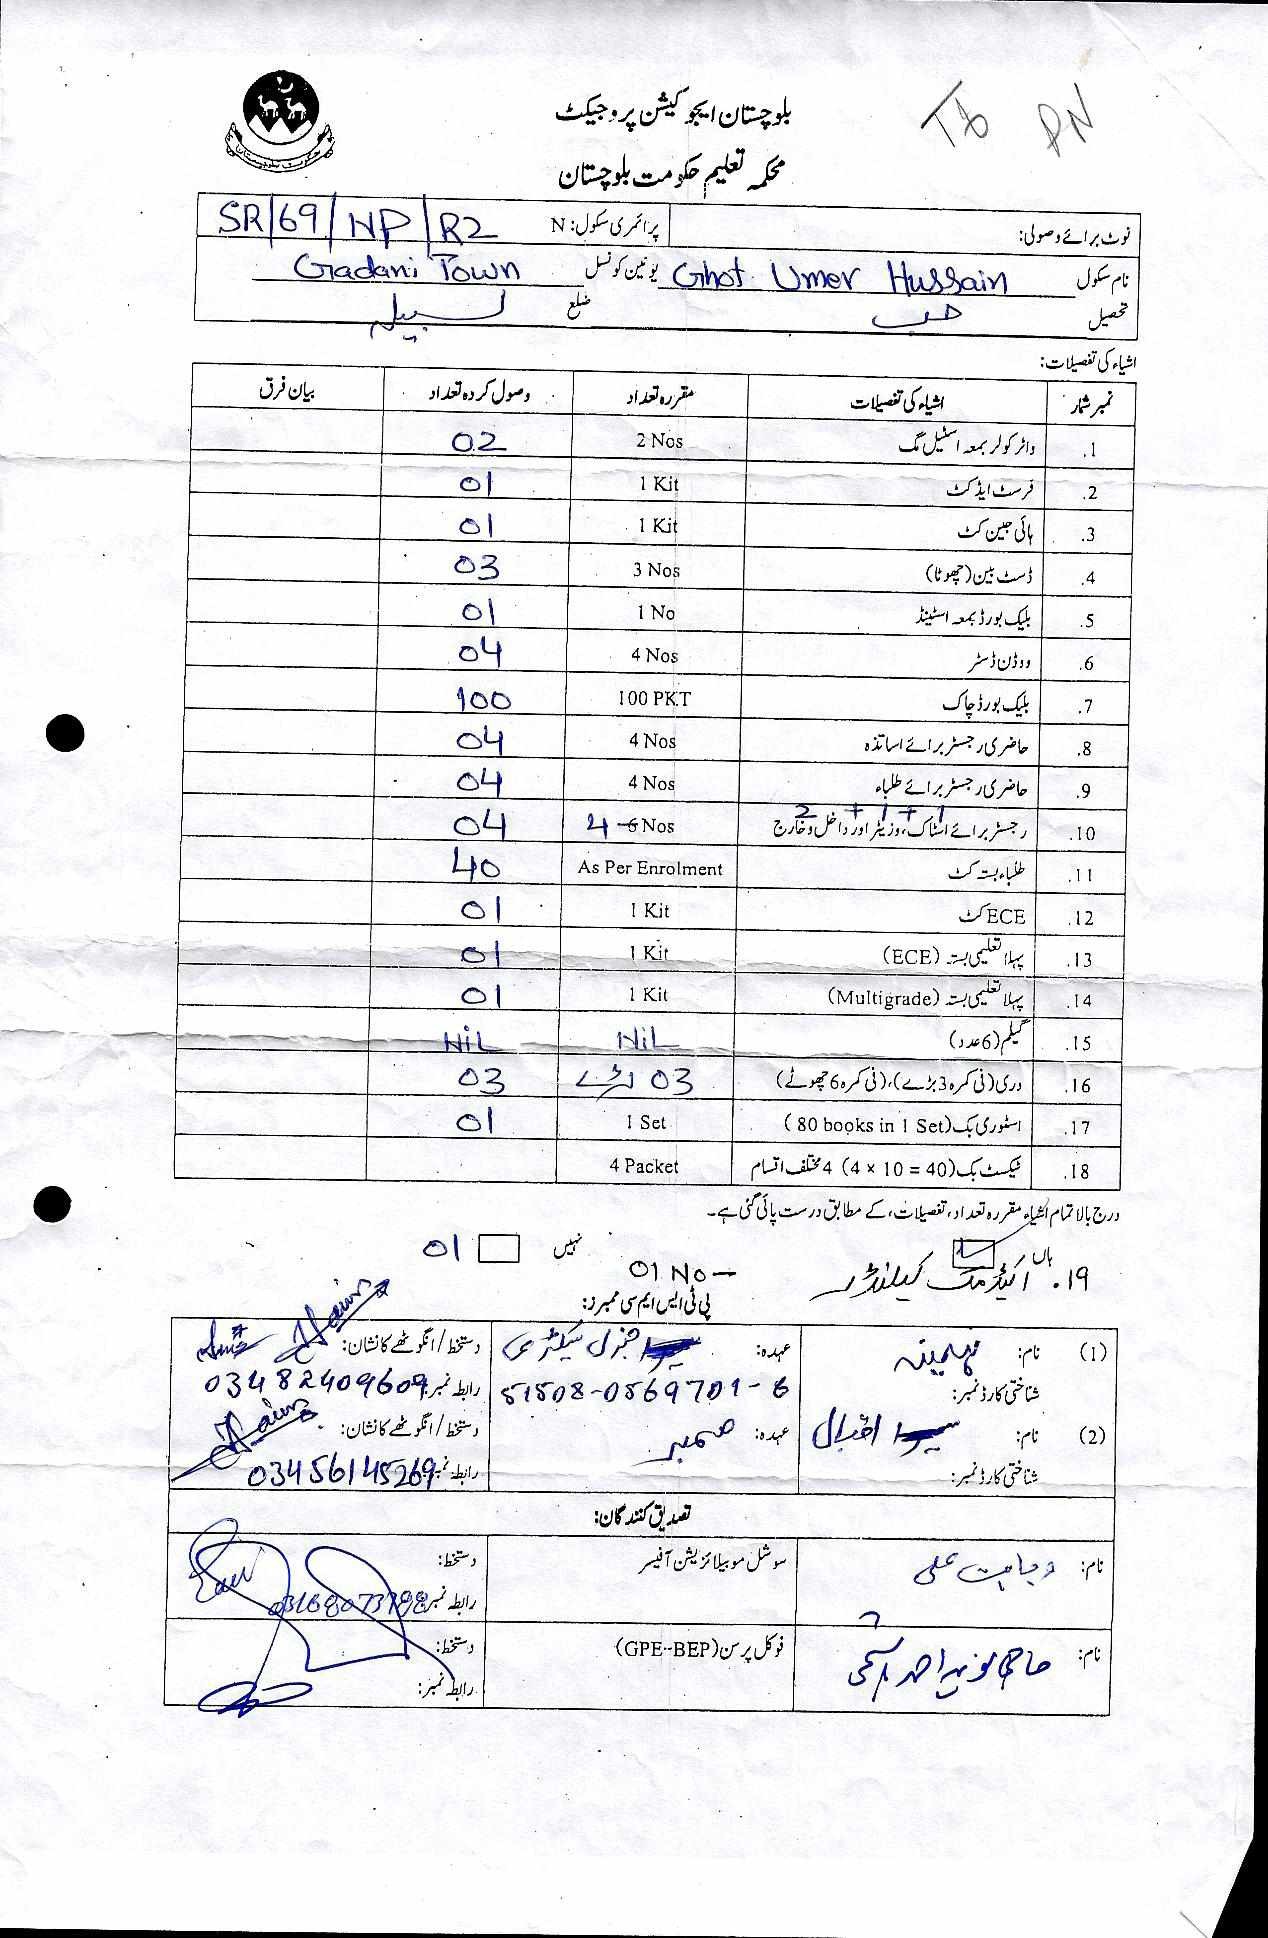 TB PN
بلوچستان ایجوکیشن پروجیکٹ
محکمہ تعلیم حکومت بلوچستان
نوٹ برائے وصولی: پرائمری سکول: N SR/69/NP/R2
نام سکول Ghot Umer Hussain یونین کونسل Gadani Town
تحصیل حب ضلع لسبیلہ
اشیاء کی تفصیلات:
نمبر شمار اشیاء کی تفصیلات مقررہ تعداد وصول کردہ تعداد بیان فرق
1. واٹر کولر بمعہ اسٹیل مگ 2 Nos 02
2. فرسٹ ایڈ کٹ 1 Kit 01
3. ہائی جین کٹ 1 Kit 01
4. ڈسٹ بین (چھوٹا) 3 Nos 03
5. بلیک بورڈ بمعہ اسٹینڈ 1 No 01
6. ووڈن ڈسٹر 4 Nos 04
7. بلیک بورڈ چاک 100 PKT 100
8. حاضری رجسٹر برائے اساتذہ 4 Nos 04
9. حاضری رجسٹر برائے طلباء 4 Nos 04
2 + 1 + 1
10. رجسٹر برائے اسٹاک، وزیٹر اور داخل و خارج 4 6 Nos 04
11. طلباء بستہ کٹ As Per Enrolment 40
12. ECE کٹ 1 Kit 01
13. پہلا تعلیمی بستہ (ECE) 1 Kit 01
14. پہلا تعلیمی بستہ (Multigrade) 1 Kit 01
15. گیم (6 عدد) NiL NiL
16. دری (فی کمرہ 3 بڑے)، (فی کمرہ 6 چھوٹے) 03 بڑے 03
17. اسٹوری بک (80 books in 1 Set) 1 Set 01
18. ٹیکسٹ بک (4 × 10 = 40) 4 مختلف اقسام 4 Packet
درج بالا تمام اشیاء مقررہ تعداد، تفصیلات، کے مطابق درست پائی گئی ہے۔
ہاں نہیں 01
۱۹. اکیڈمک کیلنڈر 01 No
پی ٹی ایس ایم سی ممبرز:
(1) نام: فہمینہ عہدہ: جنرل سیکٹری دستخط / انگوٹھے کا نشان:
شناختی کارڈ نمبر: 51508-0569701-6 رابطہ نمبر: 03482409609
(2) نام: اقبال عہدہ: ممبر دستخط / انگوٹھے کا نشان:
شناختی کارڈ نمبر: رابطہ نمبر: 03456145269
تصدیق کنندگان:
نام: وجاہت علی سوشل موبیلائزیشن آفیسر دستخط:
رابطہ نمبر:
نام: فوکل پرسن (GPE-BEP) دستخط:
رابطہ نمبر: